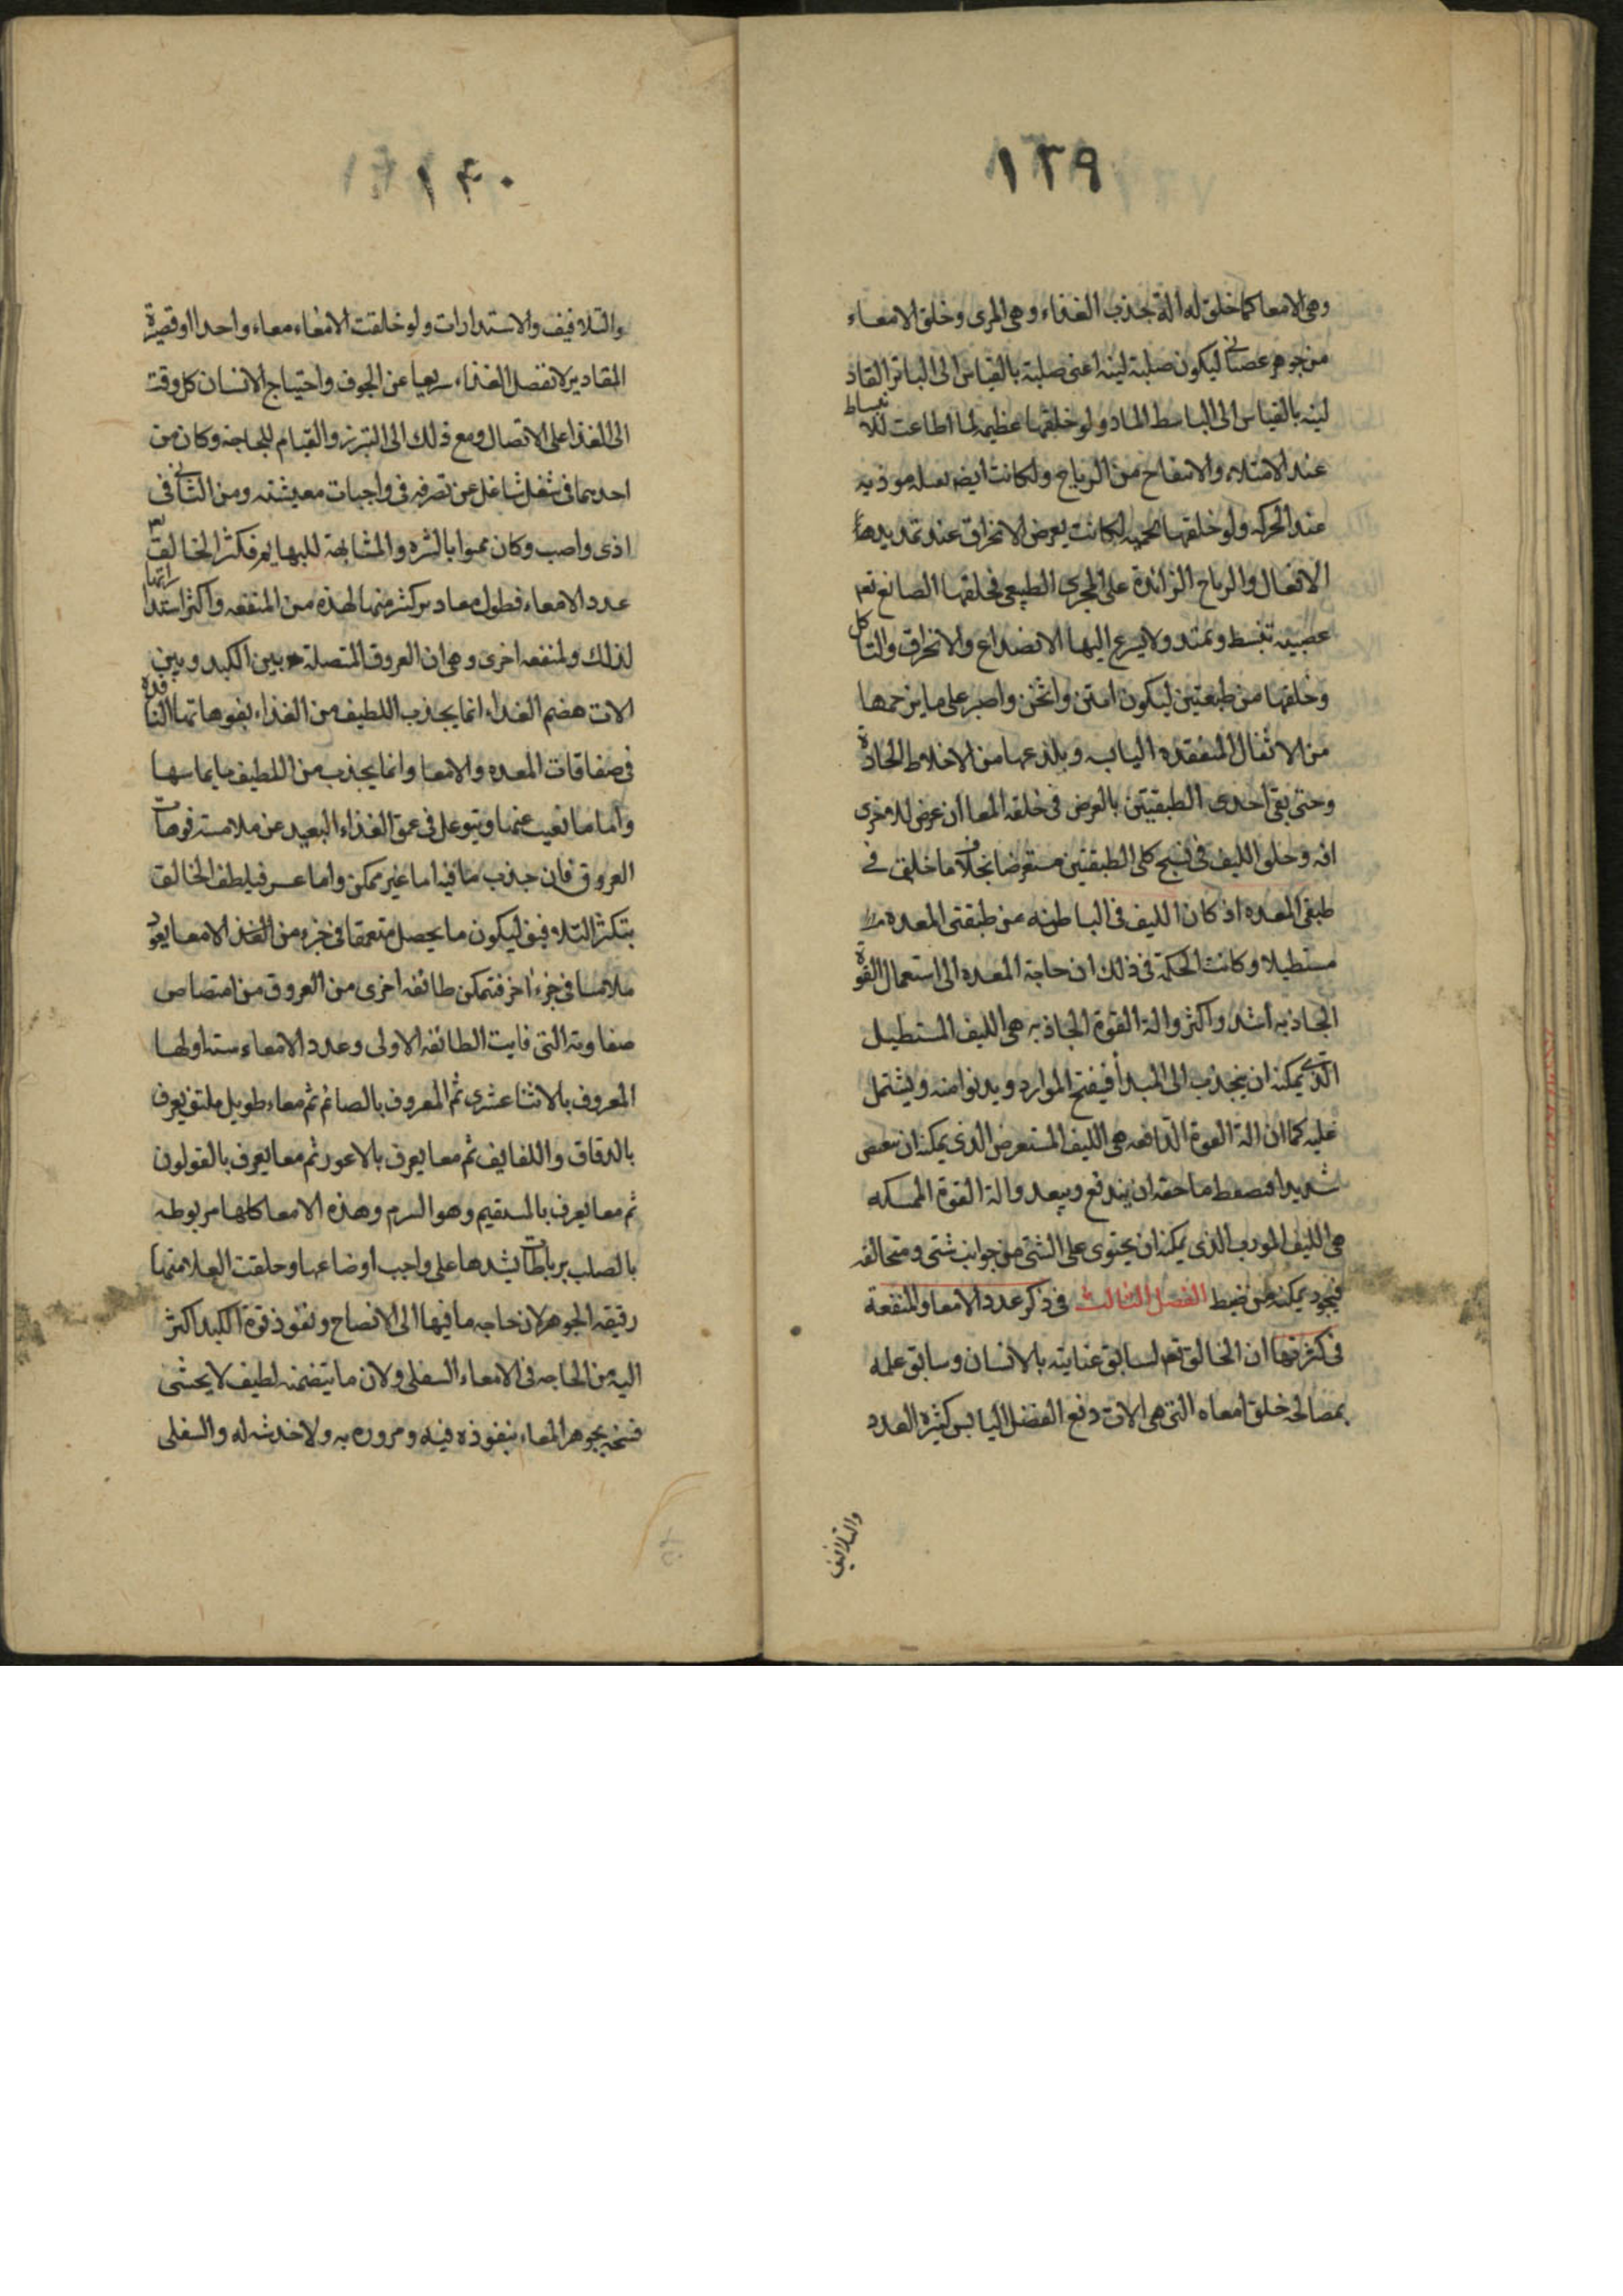 ١٣٩
وهى الامعا كما خلق له الة تجذب الغذاء وهى المرى وخلق الامعاء
من جوهر عصبانى ليكون صلبة لينه اعنى صلبة بالقياس الى الباتر القاد
لينه بالقياس الى الباسط الماد ولو خلقها عظيمه لما اطاعت للانبساط
عند الامتلاء والانتفاخ من الرياح ولكانت ايضا موذيه
عند الحركه ولو خلقها لحميه لكانت يعرض الانخراق عند تمديدها
الاثفال والرياح الزائدة على المجرى الطبيعى فخلقها الصانع تعم
عصبيه تنبسط وتمتد ولا يسرع اليها الانصداع والانخراق والتاكل
وخلقها من طبقتين ليكون امتن واثخن واصبر على ما يزحمها
من الاثفال المنعقده اليابسه ويلذعها من الاخلاط الحادة
وحتى بقى احدى الطبقيتين بالعرض فى خلقه المعا ان عرض للاخرى
افه وخلق الليف فى نسج كلى الطبقتين مستعرضا بخلاف ما خلق فى
طبقى المعده اذ كان الليف فى الباطنه من طبقتى المعده
مستطيلا وكانت الحكمة فى ذلك ان حاجة المعده الى استعمال القوة
الجاذبه اشد واكثر والة القوة الجاذبه هى الليف المستطيل
الذى يمكنه ان ينجذب الى المبدأ فيفتح الموارد ويدنوا منه ويشتمل
عليه كما ان الة القوة الدافعه هى الليف المستعرض الذى يمكنه ان يعصر
شديدا فيضغط ما حقه ان يندفع ويبعد والة القوة الممسكه
هى الليف المورب الذى يمكنه ان يحتوى على الشى من جوانب شتى ومتخالفه
فيجود يمكنه من ضغط الفصل الثالث فى ذكر عدد الامعا والمنفعة
فى كثرتها ان الخالق تعم لسابق عنايته بالانسان وسابق علمه
بمصالحه خلق امعاه التى هى الات دفع الفضل اليابس كثيرة العدد
والتلافيف
١٤٠
والتلافيف والاستدارات ولو خلقت الامعاء معاء واحدا او قصيرة
المقادير لانفصل الغذاء سريعا عن الجوف واحتياج الانسان كل وقت
الى الغذا على الاتصال ومع ذلك الى التبرز والقيام للحاجة وكان من
احدهما فى شغل شاغل عن تصرفه فى واجبات معيشته ومن الثانى فى
اذى واصب وكان ممنوا بالشره والمشابهة للبهايم فكثر الخالق
عدد الامعاء فطول مقادير كثير منها لهذه من المنفعه واكثر استداراتها
لذلك ولمنفعه اخرى وهى ان العروق المتصلة بين الكبد وبين
الات هضم الغذاء انما يجذب اللطيف من الغذاء بفوهاتها النافذة
فى صفاقات المعده والامعا وانما يجذب من اللطيف ما يماسها
واما ما يغيب عنها ويتوغل فى عمق الغذاء البعيد عن ملامسته فوهات
العروق فان جذب ما فيه اما غير ممكن واما عسر فيلطف الخالق
بتكثر التلافيف ليكون ما يحصل متعمقا فى جزء من الغذ الامعا يعود
ملامسا فى جزء اخر فتمكن طائفه اخرى من العروق من امتصاص
صفاوته التى فاتت الطائفه الاولى وعدد الامعاء سته اولها
المعروف بالاثنا عشرى ثم المعروف بالصائم ثم معاء طويل ملتف يعرف
بالدقاق واللفايف ثم معا يعرف بالاعور ثم معا يعرف بالقولون
ثم معا يعرف بالمستقيم وهو السرم وهذه الامعا كلها مربوطه
بالصلب برباطات يشدها على واجب اوضاعها وخلقت العلا منها
رقيقه الجوهر لان حاجه ما فيها الى الانضاج ونفوذ قوة الكبد اكثر
اليه من الحاجه فى الامعاء السفلى ولان ما يتضمنه لطيف لا يخشى
فسخه بجوهر المعاء بنفوذه فيه ومروره به ولا خدشه له والسفلى